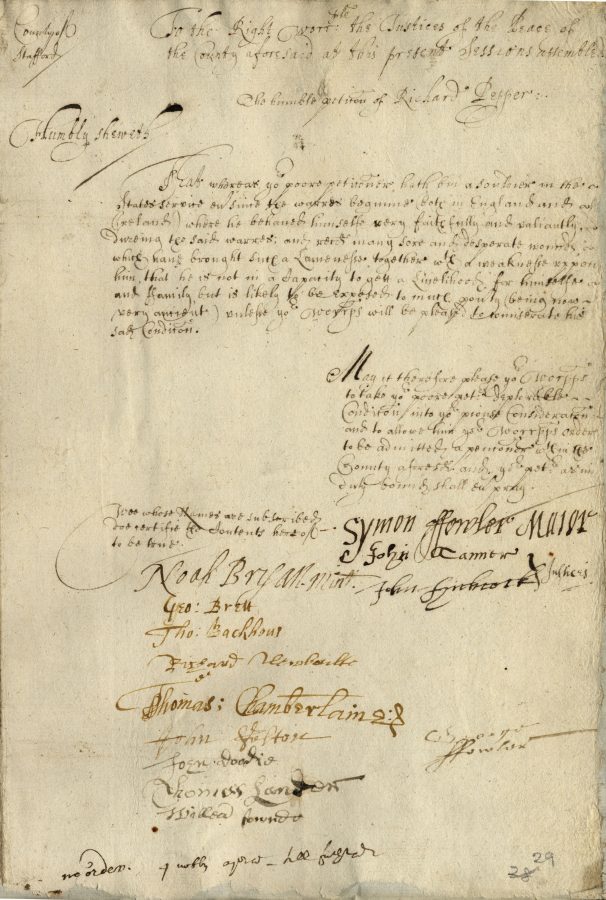 County of
Stafford
To the Right Worr:pll the Justices of the Peace of
the County aforesaid at this present Sessions assembled
The humble peticon of Richard Pepper:
Humbly sheweth
That whereas yor poore petitioner hath bin a souldier in the
States service ev since the warres begunne both in England and
(Ireland) where he behaved himselfe very faithfully and valiantly,
dureing the said warres; and recd many sore and desperate wounds
which have brought such a Lamenesse together wth a weaknesse uppon
him, that he is not in a Capacity to gett a Livelihood for himselfe
and Family but is likely to be exposed to much povty (being now
very antient) unlesse yor Worrpps will be pleased to comiserate his
sad Condicon.
May it therefore please yor Worrpps
to take yor poore petrs deplorable
Condicon into yor pious Consideracon
and to allowe him yor Worrpps order
to be admitted a pencioner wthin the
County aforesd. and yor petr as in
duty bound shall ev pray
Wee whose Names are subscribed
doe certifie the Contents hereof
to be true
Symon ffowler Maior
John Tanner
Justices
Noah Bryan mint
Geo: Brett
Tho: Backhous
Richard
Thomas: Chamberlain
John
George
ffowler
John
Thomas
Willm
no order.
28 29